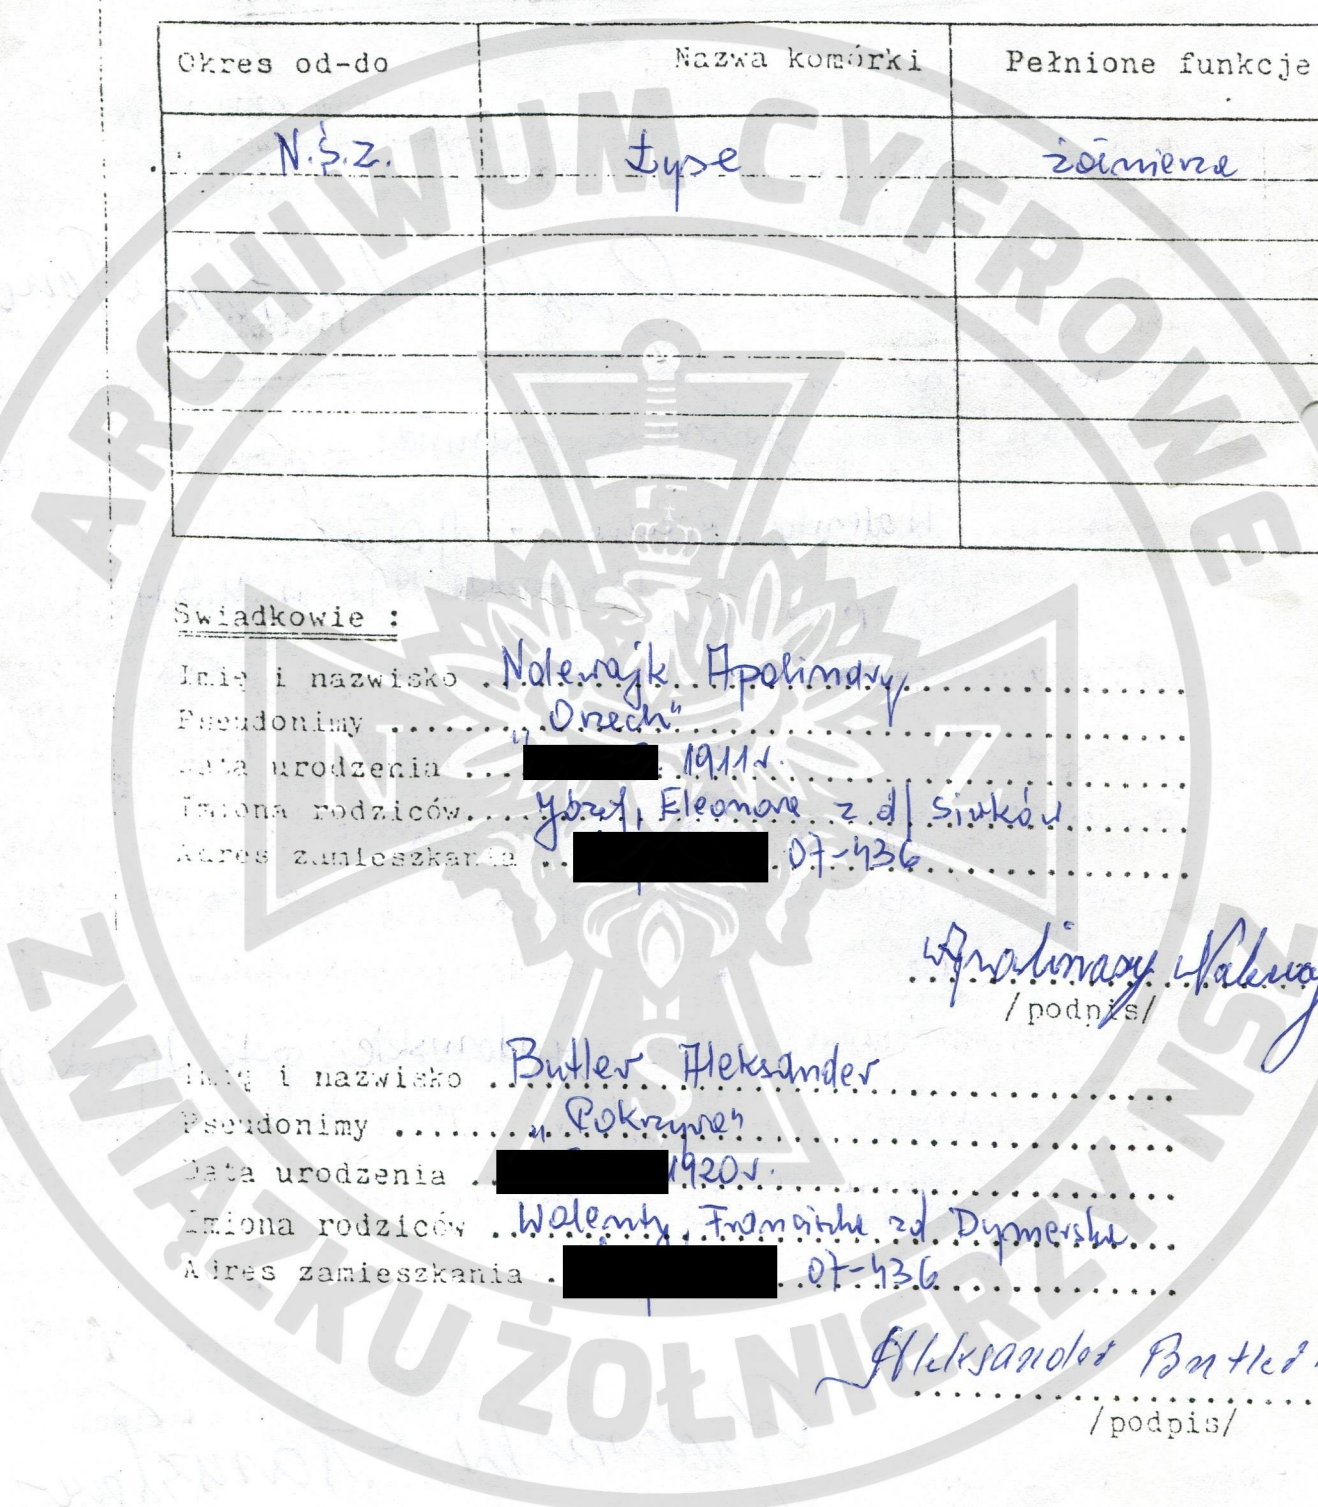 Okres od-do Nazwa komórki Pełnione funkcje
N.S.Z. Łyse żołnierza
Świadkowie :
Imię i nazwisko Nalewajk Apolinary
Pseudonimy "Orzech"
Data urodzenia 1911r.
Imiona rodziców Józef, Eleonora z d/ Sirków
Adres zamieszkania 07-436
Apolinary
/podpis/
Imię i nazwisko Butler Aleksander
Pseudonimy "Pokrzywa"
Data urodzenia 1920r.
Imiona rodziców Walenty, Franciszka zd Dymerska
Adres zamieszkania 07-436
Aleksander Butler
/podpis/
ARCHIWUM CYFROWE
ZWIĄZKU ŻOŁNIERZY NSZ
N Z
S